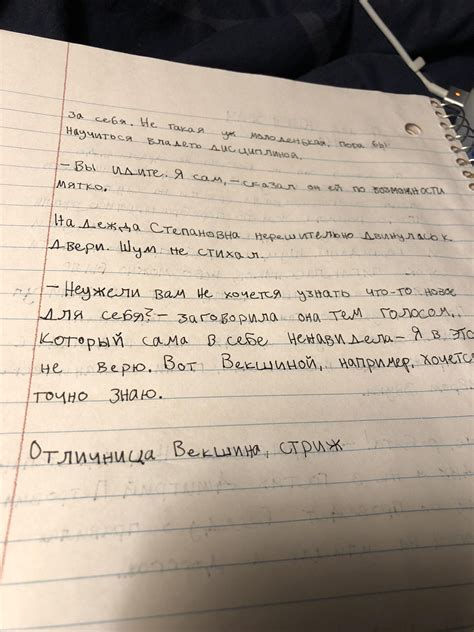 за себя. Не такая уж молоденькая, пора бы
научиться владеть дисциплиной.
– Вы идите. Я сам, – сказал он ей по возможности
мягко.
Надежда Степановна нерешительно двинулась к
двери. Шум не стихал.
– Неужели вам не хочется узнать что-то новое
для себя? – заговорила она тем голосом,
который сама в себе ненавидела – Я в это
не верю. Вот Векшиной, например, хочется
точно знаю.
Отличница Векшина, стриж